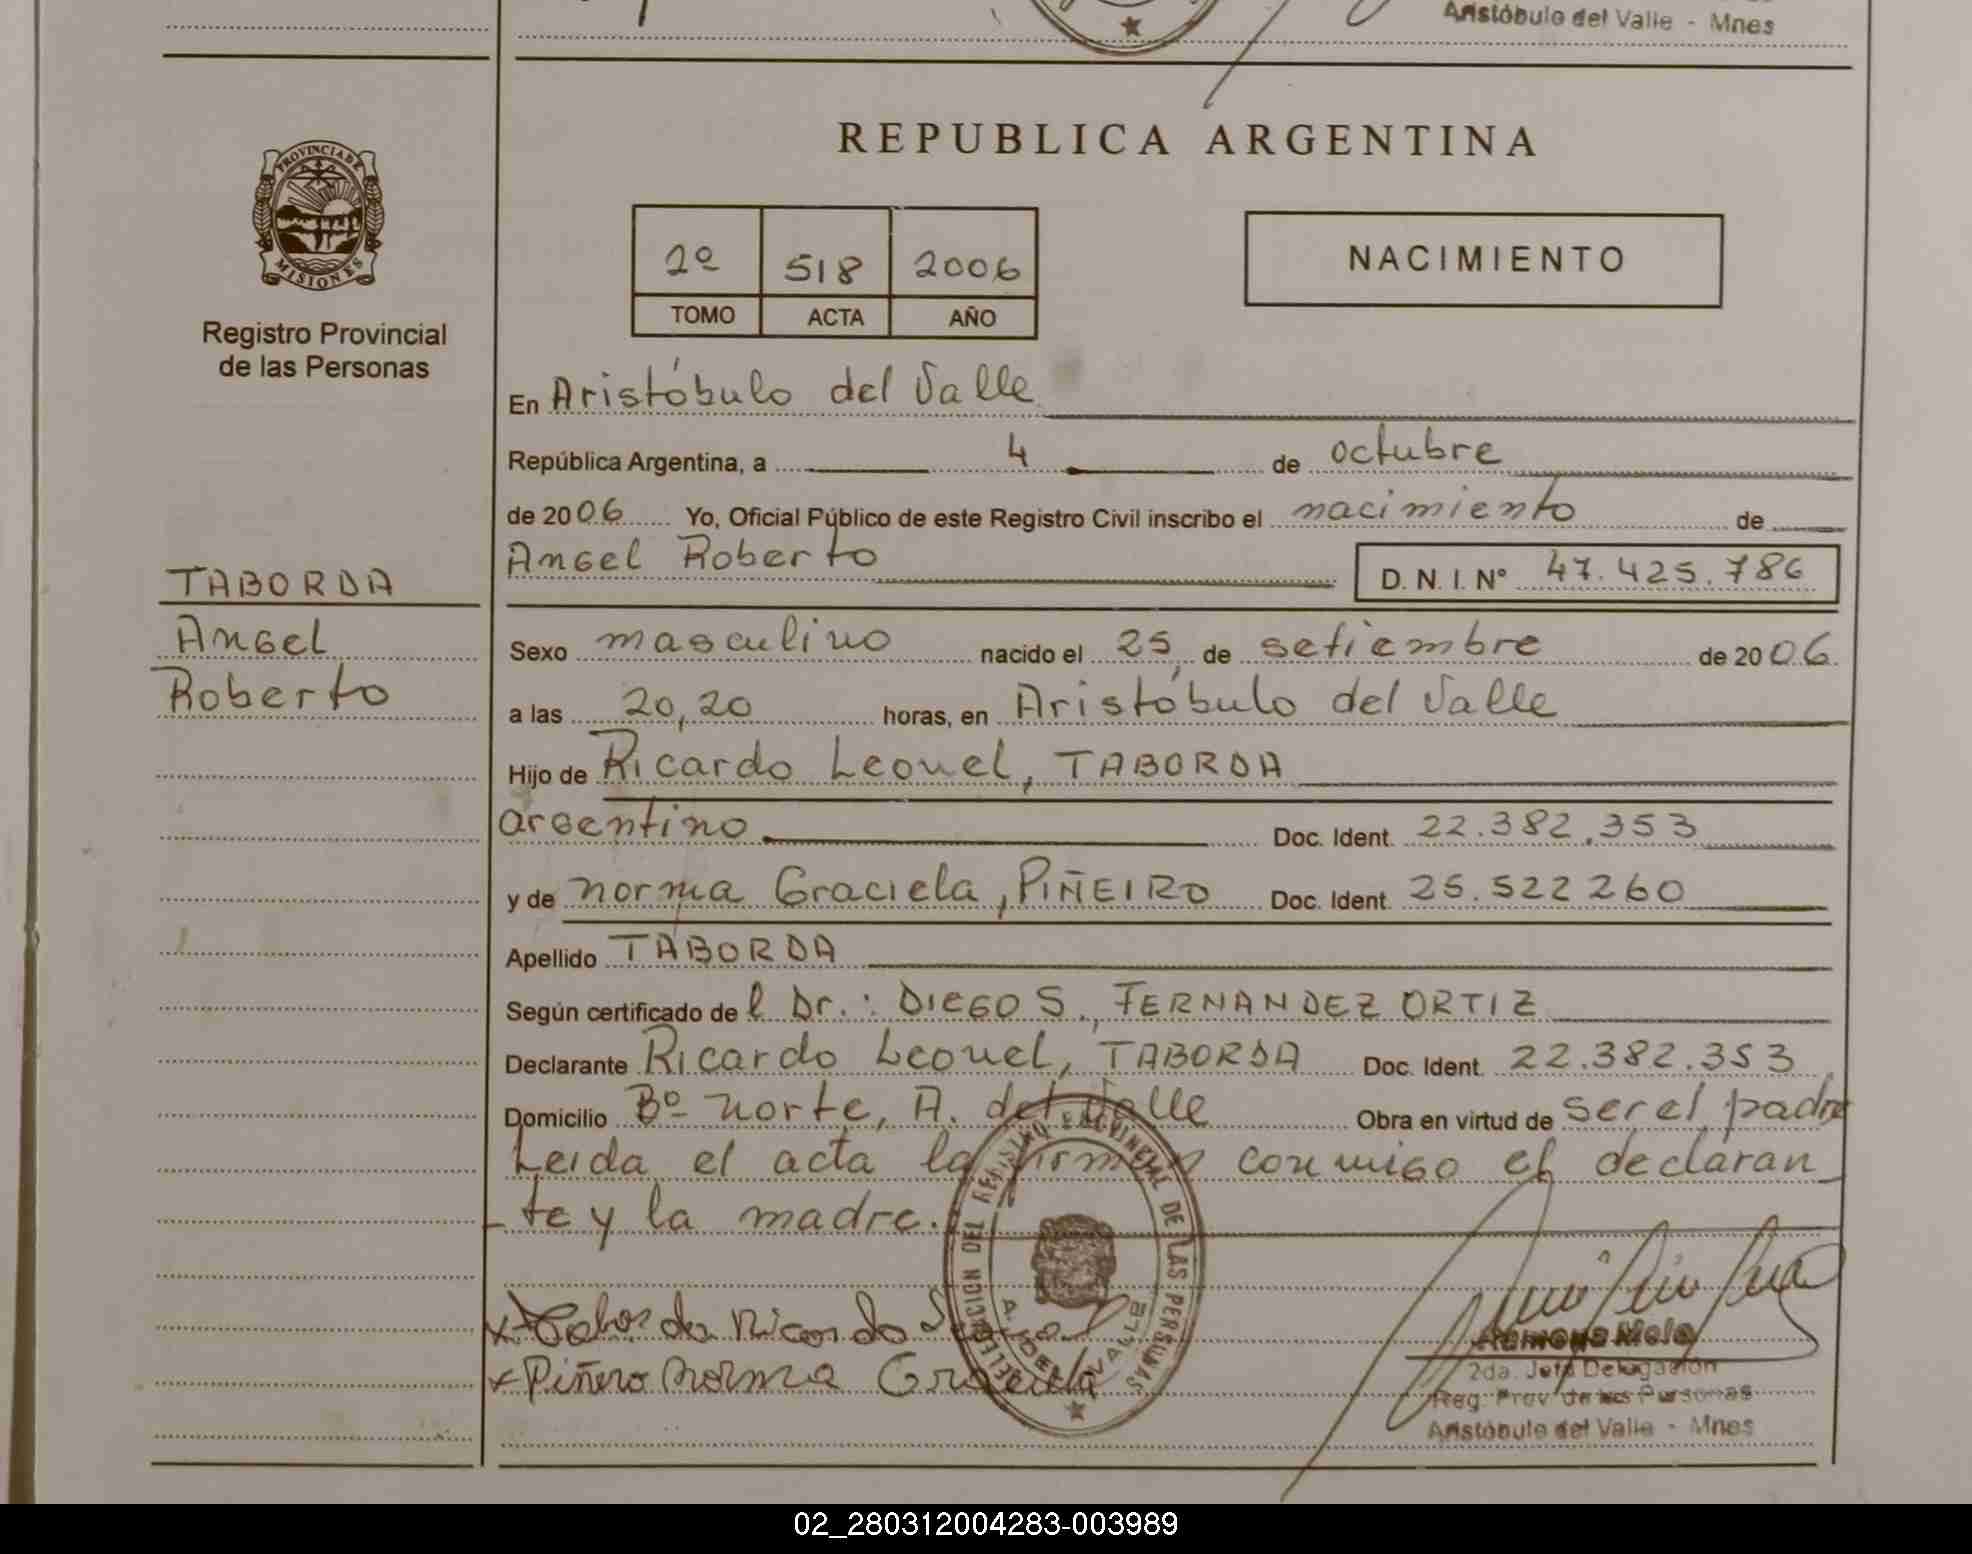 Aristóbulo del Valle - Mnes
REPUBLICA ARGENTINA
PROVINCIA DE
MISIONES
Registro Provincial
de las Personas
2º 518 2006
TOMO ACTA AÑO
NACIMIENTO
En Aristóbulo del Valle
República Argentina, a 4 de octubre
de 2006 Yo, Oficial Público de este Registro Civil inscribo el nacimiento de
Angel Roberto D. N. I. Nº 47.425.786
TABORDA
Angel
Roberto
Sexo masculino nacido el 25 de setiembre de 2006
a las 20,20 horas, en Aristóbulo del Valle
Hijo de Ricardo Leonel, TABORDA
argentino Doc. Ident. 22.382.353
y de Norma Graciela, PIÑEIRO Doc. Ident. 25.522 260
Apellido TABORDA
Según certificado de l Dr.: DIEGO S., FERNANDEZ ORTIZ
Declarante Ricardo Leonel, TABORDA Doc. Ident. 22.382.353
Domicilio Bº Norte, A. del Valle Obra en virtud de ser el padre
Leida el acta la firman conmigo el declaran
-te y la madre.
DELEGACION DEL REGISTRO PROVINCIAL DE LAS PERSONAS
A. DEL VALLE
x Taborda Ricardo
x Piñero Norma Graciela
Ramona Melo
2da. Jefa Delegación
Reg. Prov de las Personas
Aristóbulo del Valle - Mnes
02_280312004283-003989